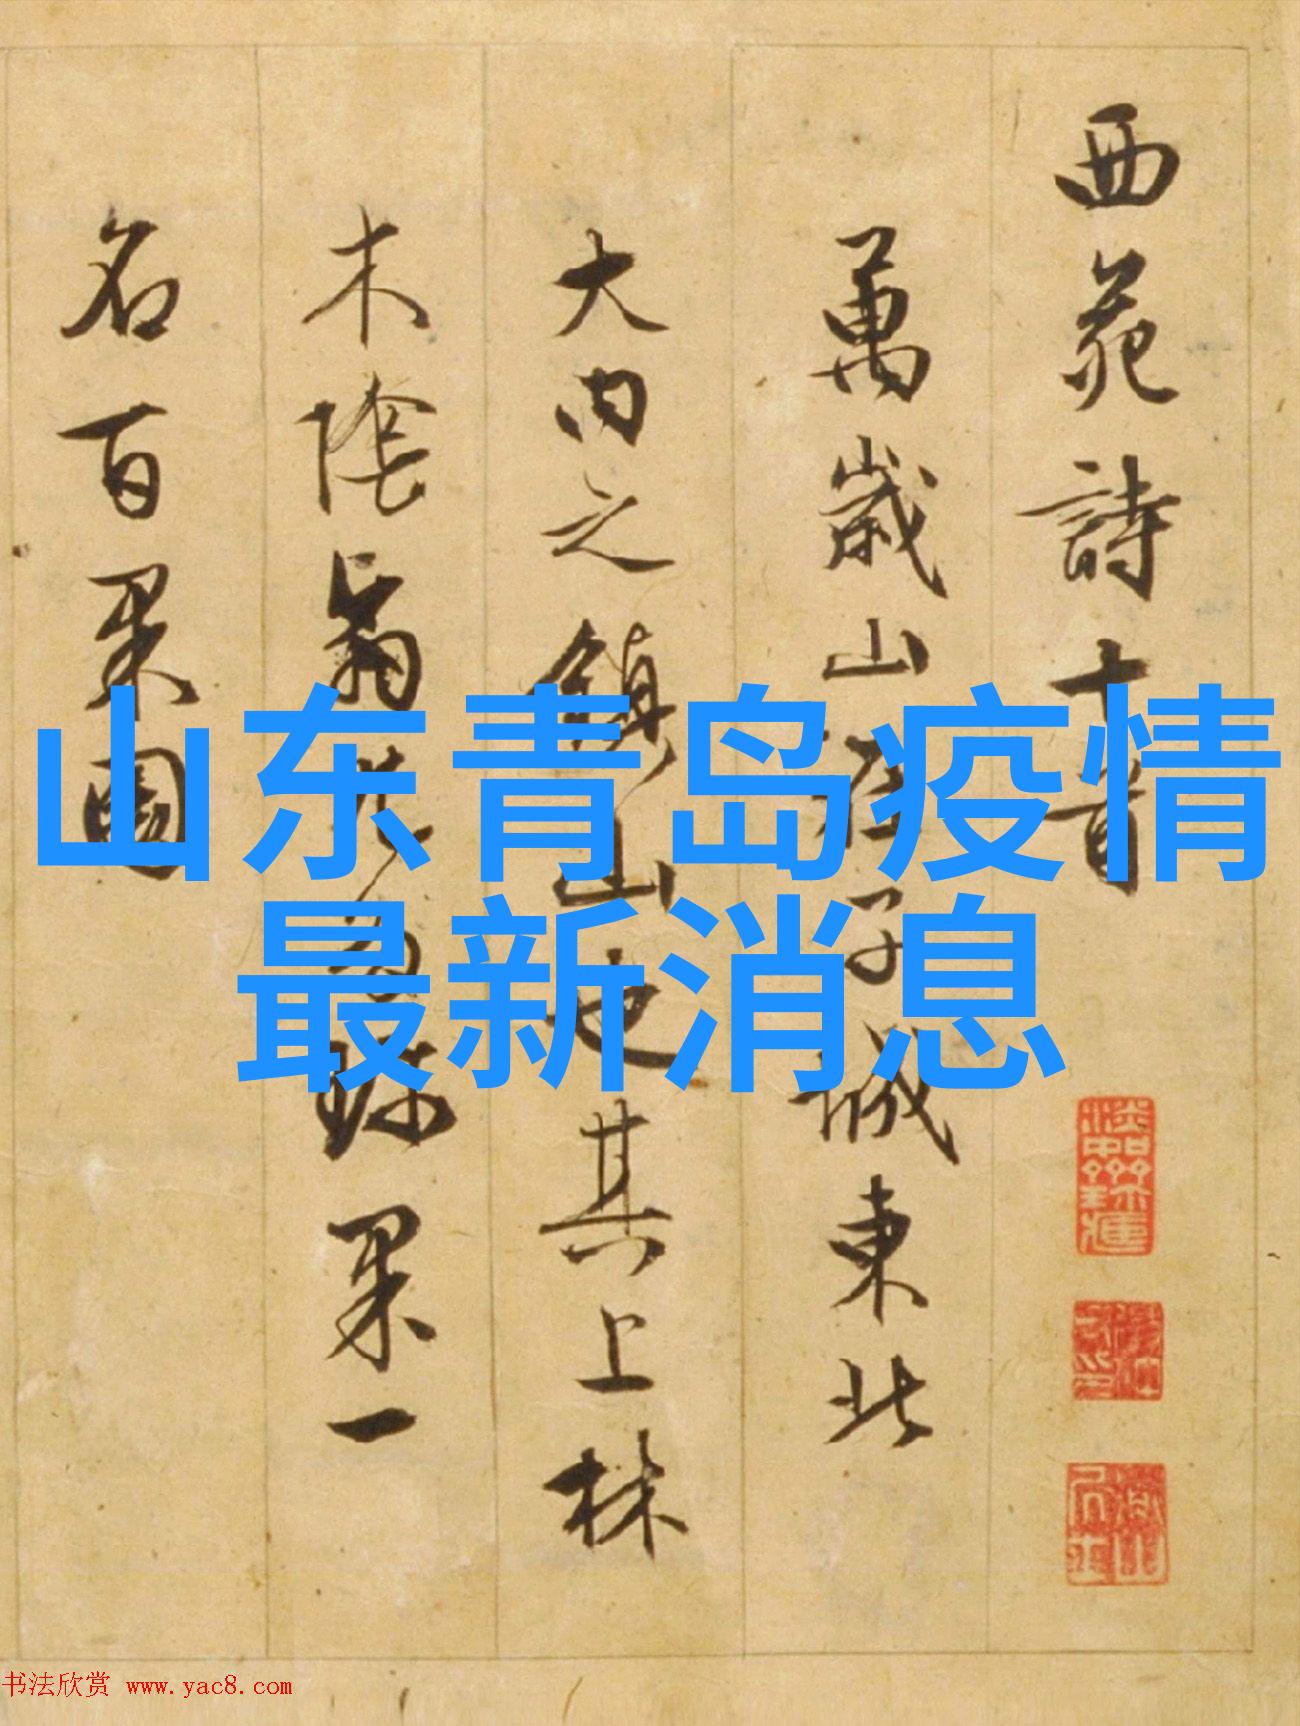 西苑詩十首
萬歲山在子城東北
大内之鎮山也其上林
木陰翳尤多珍果一
名百果園
山东青岛疫情
最新消息
书法欣赏 www.yac8.com